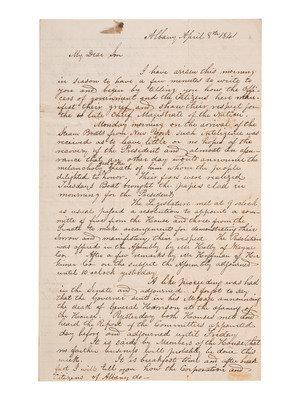 Albany April 8th 1841
My Dear Son
I have arisen this morning
in season to have a few minutes to write to
you and begin by telling you how the Offi-
cers of government and the Citizens here
their grief and shew their respect for
the late Chief Magistrate of the Nation.
Monday morning on the arrival of the
Steam Boats from New York such intelligence was
received as to leave little or no hopes of the
recovery of the President and almost the assu-
rance that any other day would announce the
melancholy death of him whom the people
delighted to honor. Their fears were realized
Tuesdays Boat brought the papers clad in
mourning for the President.
The Legislature met at 9 oclock
as usual passed a resolution to appoint a com-
mittee of five from the House and three from the
Senate to make arrangements for demonstrating their
Sorrow and manifesting their respect. The Resolution
was offered in the Assembly by Mr of
Co. After a few remarks by Mr Hoffman of Her-
kimer Co. in the support the Assembly adjourned
until 10 oclock yesterday.
A like proceeding was had
in the Senate and adjourned. I forgot to say
that the Governor sent in his Message announcing
the death of General Harrison at the opening of
the House. Yesterday both Houses met and
heard the Report of the Committees appointed
day before and adjourned until Friday.
It is said by Members of the House that
no further business will probably be done this
week. It is breakfast time and after break-
fast I will tell you how the Corporation and
Citizens of Albany do